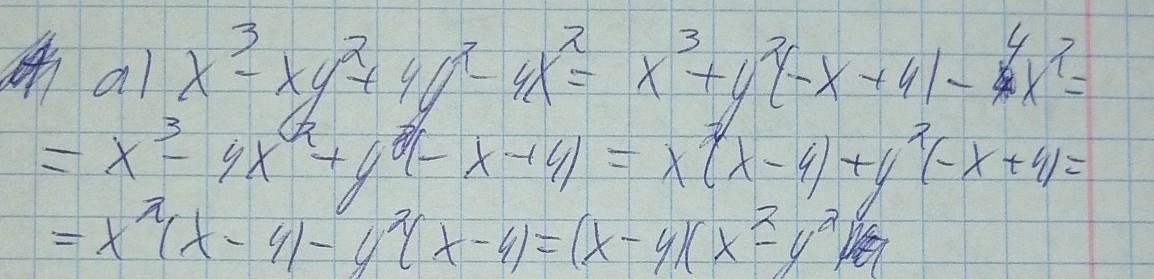 а) x³ - xy² + 4y² - 4x² = x³ + y²(-x + 4) - 4x² =
= x³ - 4x² + y²(-x + 4) = x²(x - 4) + y²(-x + 4) =
= x²(x - 4) - y²(x - 4) = (x - 4)(x² - y²)